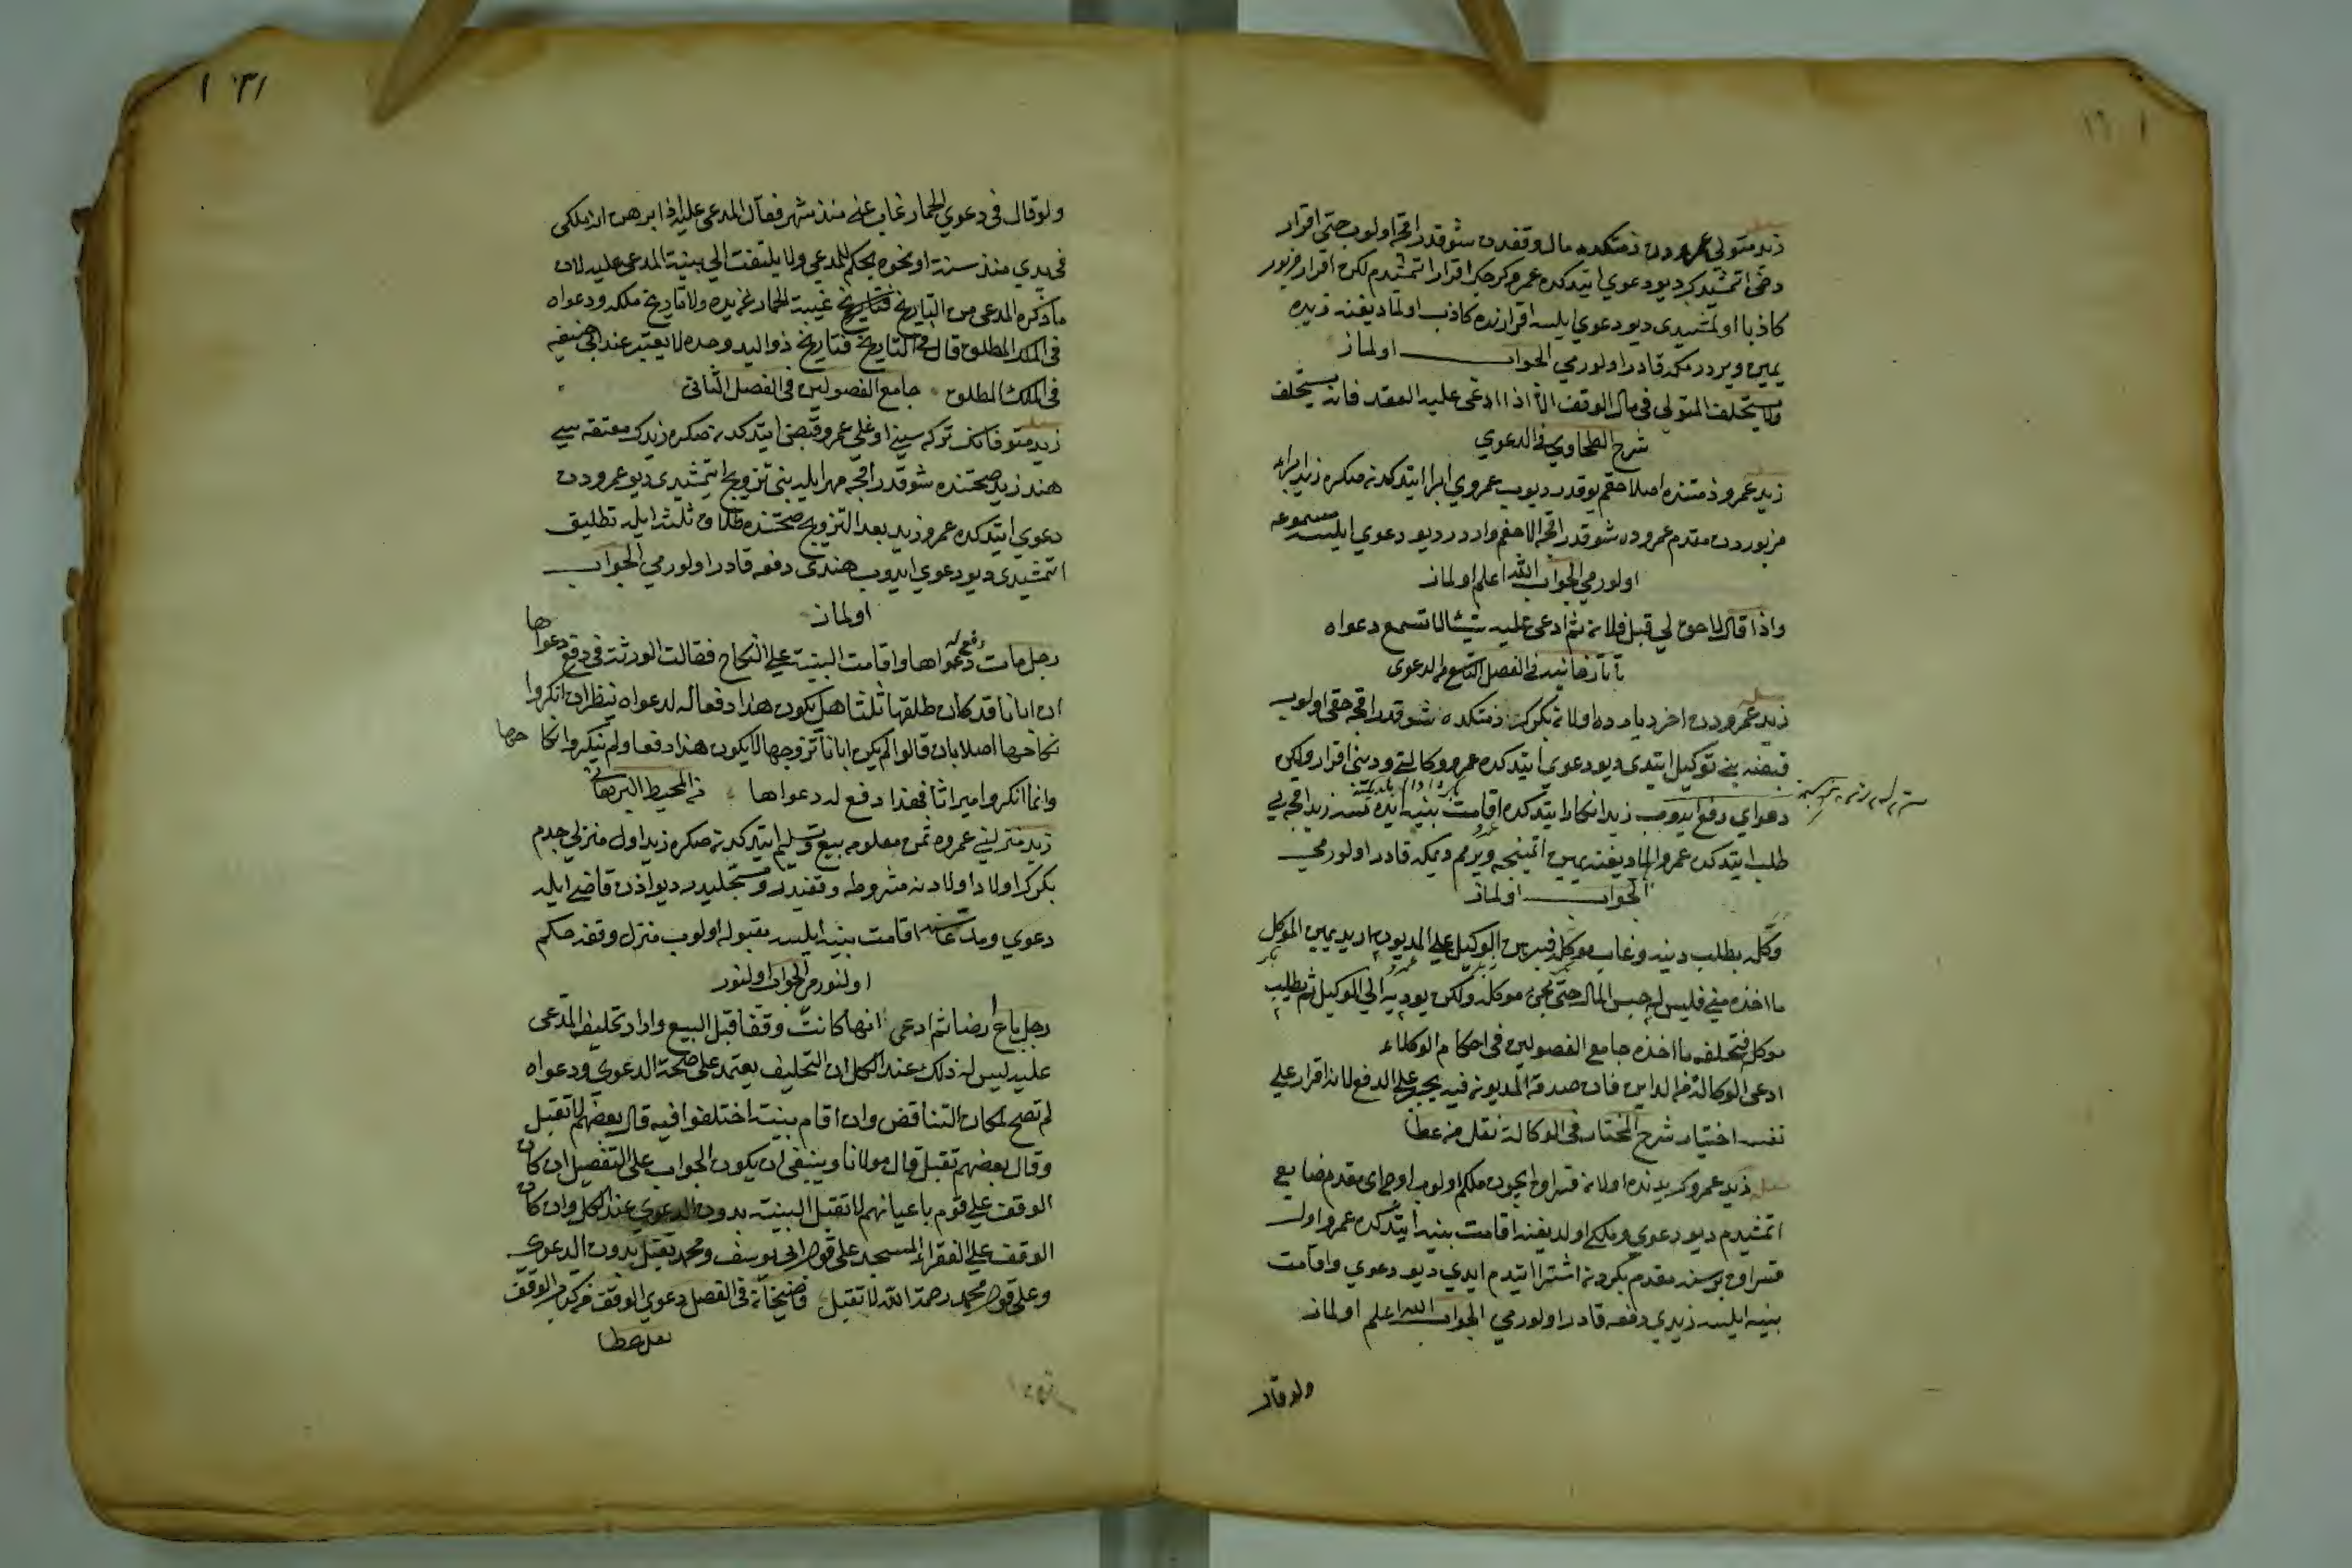 زيد متولي عمرودن ذمتكده مال وقفدن شوقدر اقچه اولوب حتى اقرار
دخى اتمشيدك ديو دعوي ايتدكده عمرو كرچك اقرار اتمشيدم لكن اقرار مزبور
كاذبا اولمشيدى ديو دعوي ايلسه اقرارنده كاذب اولماديغنه زيده
يمين ويردرمكه قادر اولورمي الجواب اولماز
ولا يستحلف المتولي في مال الوقف الا اذا ادعى عليه العقد فانه يستحلف
شرح الطحاوي في الدعوي
زيد عمرو ذمتنده اصلا حقم يوقدر ديوب عمروي ابرا ايتدكدنصكره زيد ابراء
مزبوردن مقدم عمروده شوقدر اقچه الاحقم واردر ديو دعوي ايلسه مسموعه
اولورمي الجواب الله اعلم اولماز
واذا قال لا حق لي قبل فلان ثم ادعى عليه شيئا لا تسمع دعواه
تاتارخانيه في الفصل التاسع من الدعوى
زيد عمرودن اخر ديارده اولان بكرك ذمتكده شوقدر اقچه حقى اولوب
قبضنه بني توكيل ايتدى ديو دعوي ايتدكده عمرو وكالتي و ديني اقرار ولكن
دعواي دفع ايدوب زيد انكار ايتدكده اقامت بينه ايده زيد اقچه يي
طلب ايتدكده عمرو يمين اتمينجه ويرمم ديمكه قادر اولورمي
الجواب اولماز
وكله بطلب دينه وغاب موكله فبرهن الوكيل على المديون اريد يمين الموكل
ما اخذه مني فليس له حبس المال حتى يجئ موكله ولكن يوديه الى الوكيل ثم يطلب
موكل فتحلفه ما اخذه جامع الفصولين في احكام الوكلاء
ادعى الوكالة من الداين فان صدقه المديون فيه يجبر على الدفع لانه اقرار على
نفسه اختيار شرح المختار في الوكالة نقل من عطا
زيد عمروك يدنده اولان قسراغ ايچون ملكم اولوب مقدم ضايع
اتمشيدم ديو دعوي وملكي اولديغنه اقامت بينه ايتدكده عمرو اول
قسراغ بر سنه مقدم بكردن اشترا ايتدم ايدي ديو دعوي واقامت
بينه ايلسه زيدي دفعه قادر اولورمي الجواب الله اعلم اولماز
ولو قال
ولو قال في دعوي الحمار غاب عني منذ شهر فقال المدعى عليه اذا برهن انه ملكي
في يدي منذ سنة او نحوه يحكم للمدعي ولا يلتفت الي بينة المدعى عليه لان
ما ذكره المدعى من التاريخ فتاريخ غيبة الحمار عن يده ولا تاريخ ملكه ودعواه
في الملك المطلق قال في التاريخ فتاريخ ذو اليد وحده لا يعتبر عند ابي حنيفه
في الملك المطلق جامع الفصولين في الفصل الثاني
زيد متوفانك تركه سيني اوغلي عمرو قبض ايتدكدنصكره زيدك معتقه سي
هند زيد صحتنده شوقدر اقچه مهر ايله بني تزويج ايتمشيدى ديو عمرودن
دعوي ايتدكده عمرو زيد بعد التزويج صحتنده طلاق ثلث ايله تطليق
اتمشيدى ديو دعوي ايدوب هندى دفعه قادر اولورمي الجواب
اولماز
رجل مات دعواها واقامت البينة على النكاح فقالت الورثة في دفع دعواها
ان ابانا قد كان طلقها ثلثا هل يكون هذا دفعا له لدعواه ينظر ان انكروا
نكاحها اصلا بان قالوا لم يكن ابانا تزوجها لا يكون هذا دفعا ولم ينكروا نكاحها
وانما انكروا ميراثا فهذا دفع له دعواها من المحيط البرهاني
زيد منزليني عمروه ثمن معلومه بيع وتسليم ايتدكدنصكره زيد اول منزلي جدم
بكرك اولاد اولادنه مشروطه وقفيدر ومسجليدر ديو اذن قاضي ايله
دعوي ومدعاسنه اقامت بينه ايلسه مقبوله اولوب منزل وقفه حكم
اولنورمي الجواب اولنور
رجل باع ارضا ثم ادعى انها كانت وقفا قبل البيع واراد تحليف المدعى
عليه ليس له ذلك عند الكل ان التحليف يعتمد على صحة الدعوي ودعواه
لم تصح لمكان التناقض وان اقام بينة اختلفوا فيه قال بعضهم لا تقبل
وقال بعضهم تقبل قال مولانا وينبغى ان يكون الجواب على التفصيل ان كان
الوقف على قوم باعيانهم لا تقبل البينة بدون الدعوي عند الكل وان كان
الوقف على الفقراء المسجد على قول ابي يوسف ومحمد تقبل بدون الدعوي
وعلى قول محمد رحمة الله لا تقبل قاضيخان في الفصل دعوي الوقف من كتاب الوقف
نقل عطا